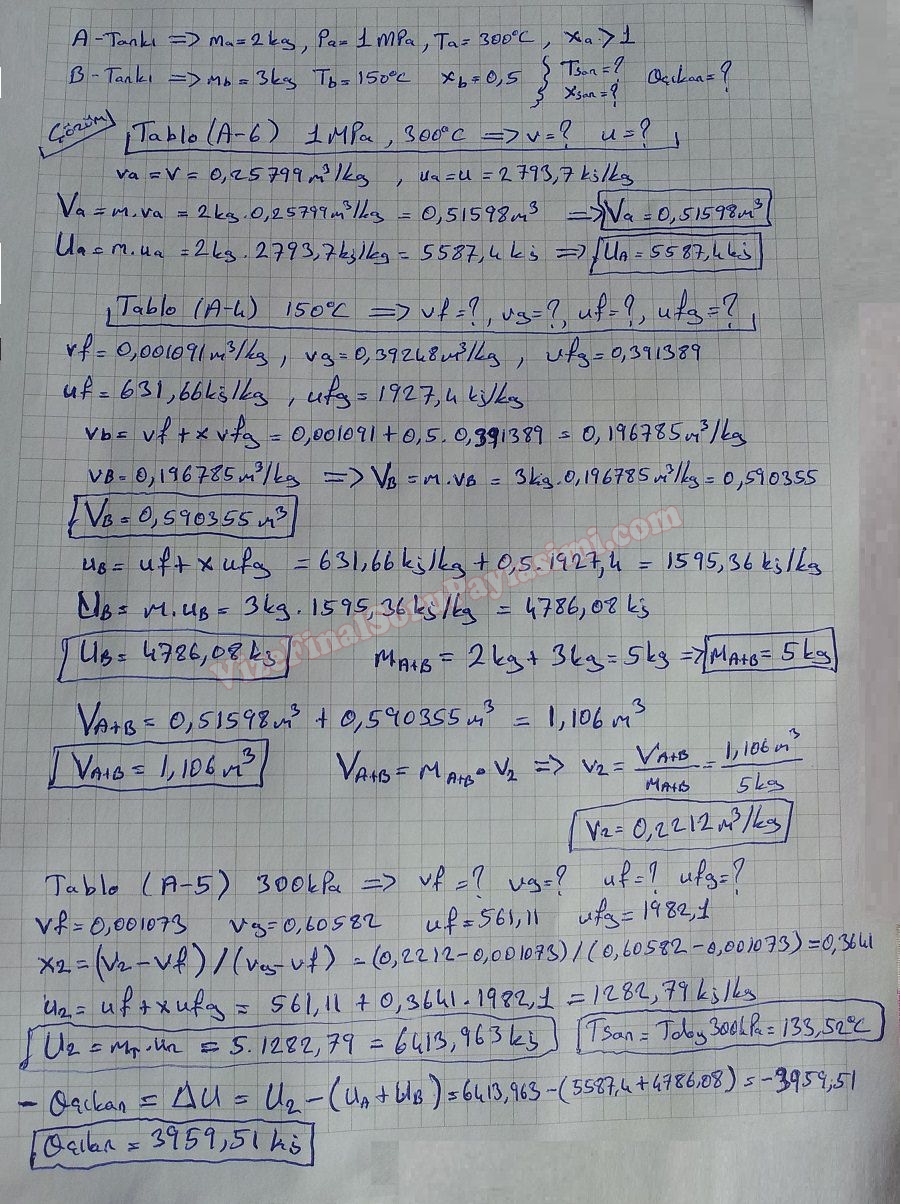 A-Tankı => ma=2kg, Pa=1MPa, Ta=300°C, xa>1
B-Tankı => mb=3kg Tb=150°C xb=0,5 } Tson=? xson=? Qçıkan=?
Çözüm
Tablo (A-6) 1MPa, 300°C => v=? u=?
va=v=0,25799m³/kg, ua=u=2793,7kj/kg
Va=m.va=2kg.0,25799m³/kg=0,51598m³ => Va=0,51598m³
Ua=m.ua=2kg.2793,7kj/kg=5587,4kj => UA=5587,4kj
Tablo (A-4) 150°C => vf=?, vg=?, uf=?, ufg=?
vf=0,001091m³/kg, vg=0,39248m³/kg, ufg=0,391389
uf=631,66kj/kg, ufg=1927,4kj/kg
vb=vf+xvfg=0,001091+0,5.0,391389=0,196785m³/kg
vB=0,196785m³/kg => VB=m.vB=3kg.0,196785m³/kg=0,590355
VB=0,590355m³
uB=uf+xufg=631,66kj/kg+0,5.1927,4=1595,36kj/kg
UB=m.uB=3kg.1595,36kj/kg=4786,08kj
UB=4786,08kj mA+B=2kg+3kg=5kg => mA+B=5kg
VA+B=0,51598m³+0,590355m³=1,106m³
VA+B=1,106m³ VA+B=mA+B.v2 => v2=VA+B/mA+B=1,106m³/5kg
v2=0,2212m³/kg
Tablo (A-5) 300kPa => vf=? vg=? uf=? ufg=?
vf=0,001073 vg=0,60582 uf=561,11 ufg=1982,1
x2=(v2-vf)/(vg-vf)=(0,2212-0,001073)/(0,60582-0,001073)=0,3641
u2=uf+xufg=561,11+0,3641.1982,1=1282,79kj/kg
U2=mT.u2=5.1282,79=6413,963kj Tson=Tdoy300kPa=133,52°C
-Qçıkan=ΔU=U2-(UA+UB)=6413,963-(5587,4+4786,08)=-3959,51
Qçıkan=3959,51kj
VizeFinalSoruPaylasimi.com